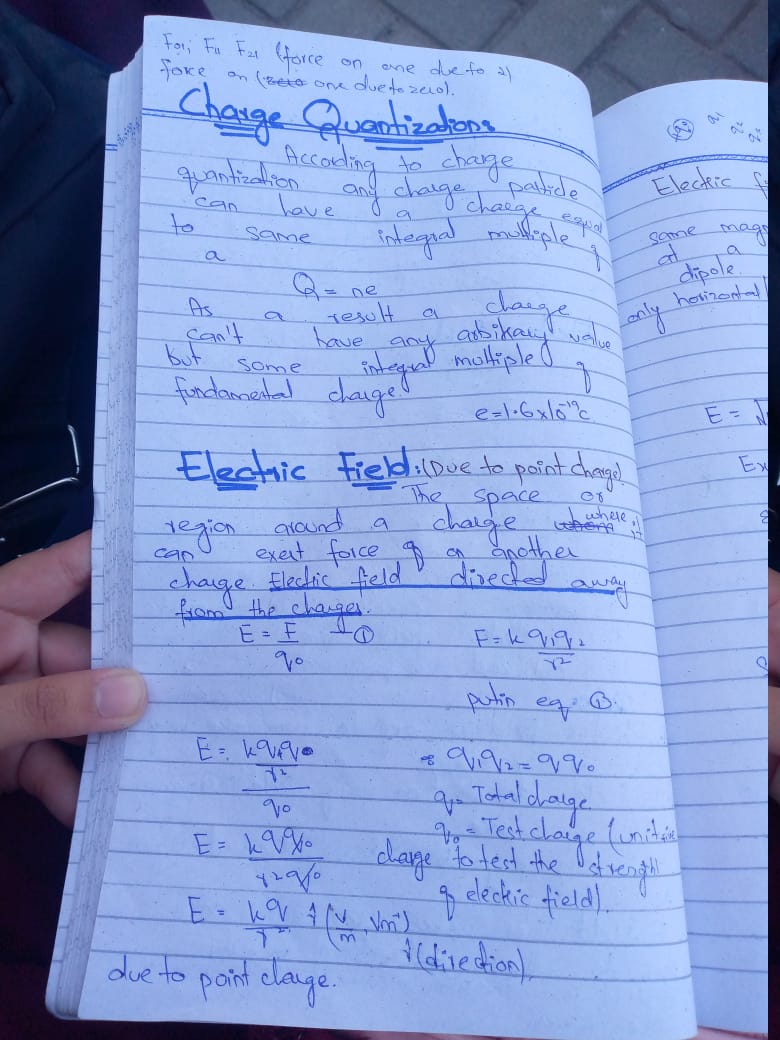 F01, F11 F21 (force on one due to 2)
force on (zero one due to zero).
Charge Quantization:
According to charge
quantization any charge particle
can have a charge equal
to same integral multiple of
a
Q = ne
As a result a charge
can't have any arbitrary value
but some integral multiple of
fundamental charge
e=1.6x10⁻¹⁹c
Electric Field:(Due to point charge)
The space or
region around a charge where where it
can exert force of on another
charge. Electric field directed away
from the charges.
E = F/q₀ — ①
F = k q₁q₂/r²
put in eq. ①.
E = kq₁q₀/r²/q₀
∵ q₁q₂ = qq₀
q = Total charge
q₀ = Test charge (unit +ive
charge to test the strenght
of electric field).
E = kqq₀/r²q₀
E = kq/r² r̂ (V/m, Vm⁻¹)
r̂ (direction).
due to point charge.
q₁
q₂
q₃
Electric f
same mag
at a
dipole.
only horizontal
E = √
Ex